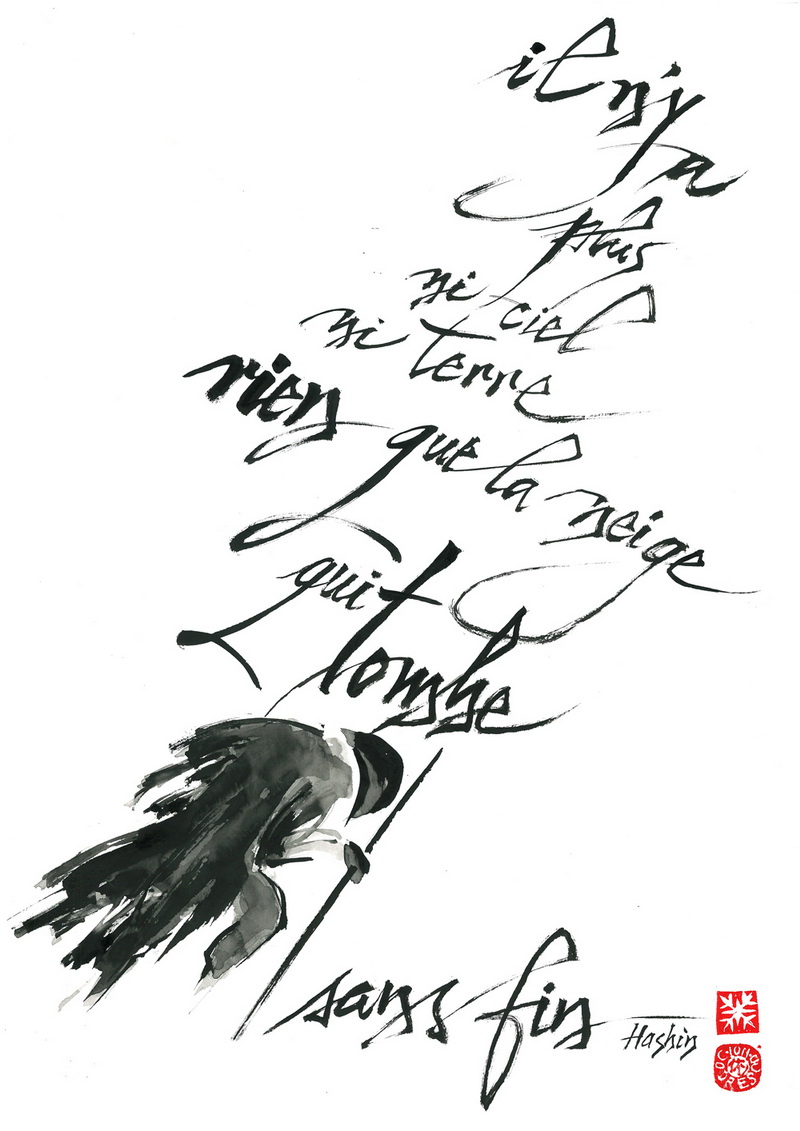 il n'y
a
plus
ni ciel
ni terre
rien que la neige
qui tombe
sans fin
Hashin